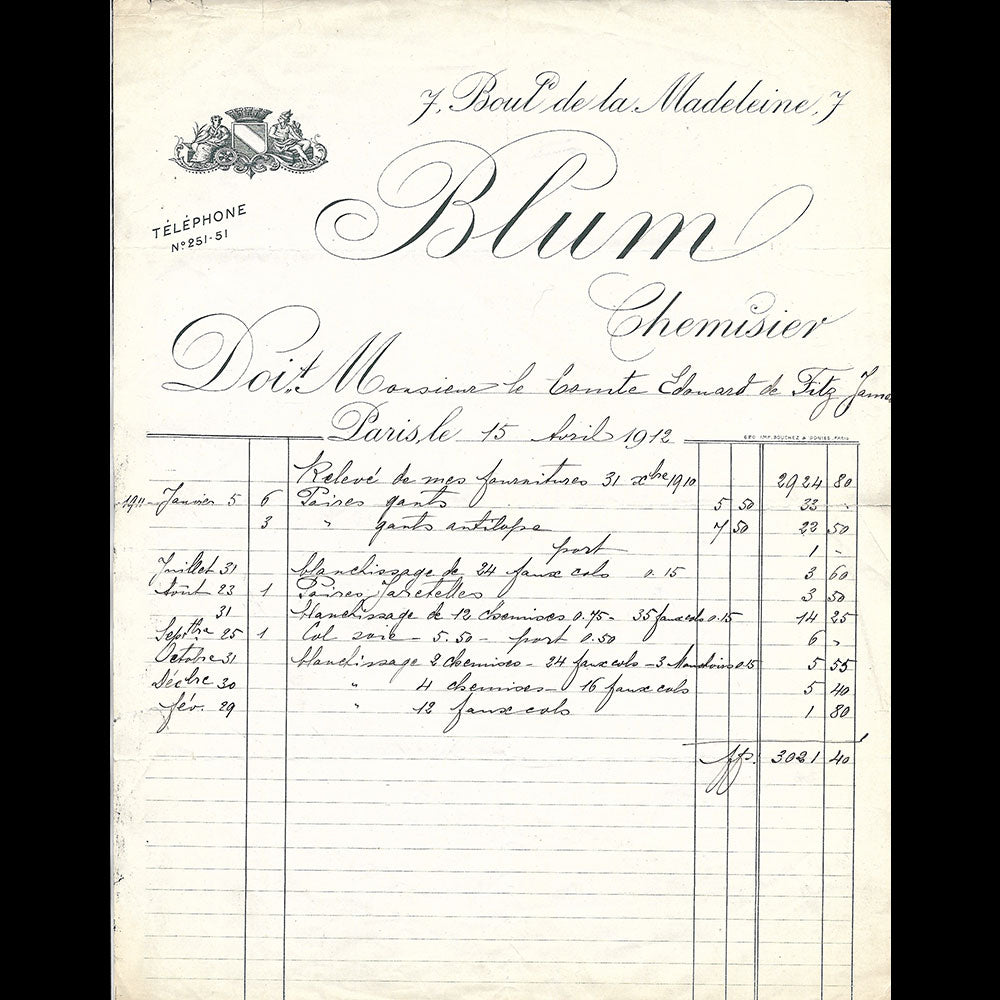 7, Boul.ᵈ de la Madeleine, 7
TÉLÉPHONE
Nº 251-51
Blum
Chemisier
Doit Monsieur le Comte Edouard de Fitz James
Paris, le 15 Avril 1912
Relevé de mes fournitures 31 xbre 1910 2924 80
1911 Janvier 5 6 Paires gants 5 50 33 -
3 " gants antilope 7 50 22 50
port 1 -
Juillet 31 blanchissage de 24 faux cols 0.15 3 60
Aout 23 1 Paires Jaretelles 3 50
31 blanchissage de 12 chemises 0.75 - 35 faux cols 0.15 14 25
Septbre 25 1 Col soie - 5.50 - port 0.50 6 -
Octobre 31 blanchissage 2 chemises - 24 faux cols - 3 Mouchoirs 0.15 5 55
Décbre 30 " 4 chemises - 16 faux cols 5 40
fév. 29 " 12 faux cols 1 80
3021 40